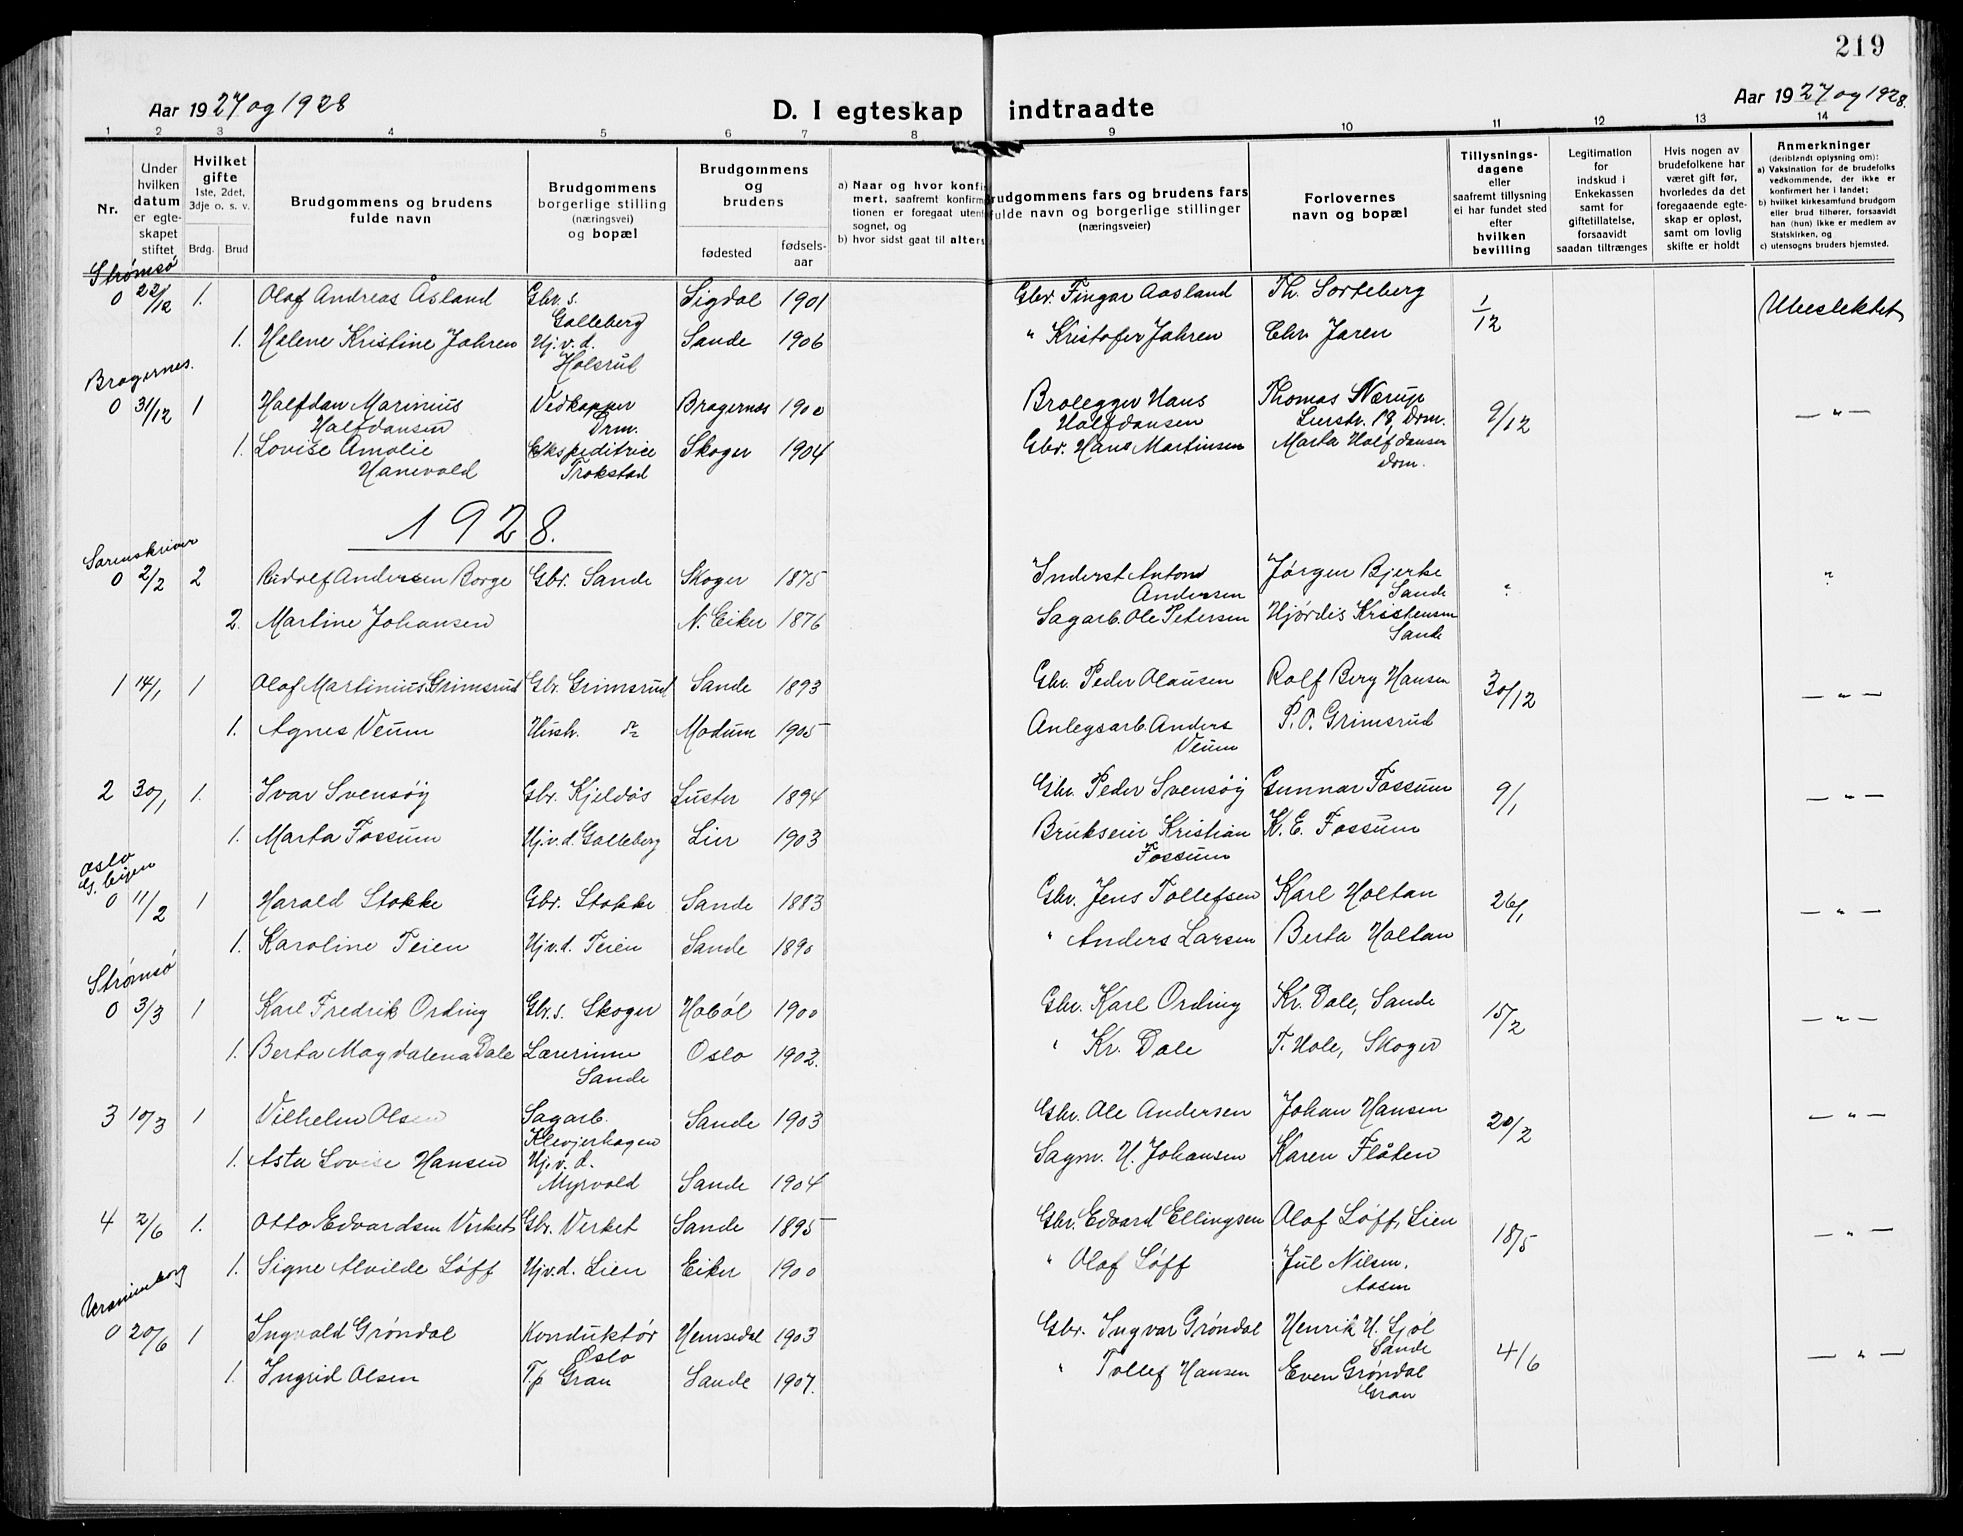 219
Aar 1927 og 1928
D. I egteskap indtraadte
Aar 1927 og 1928.
1 2 3 4 5 6 7 8 9 10 11 12 13 14
Nr.
Under hvilken datum er egteskapet stiftet
Hvilket gifte
1ste, 2det, 3dje o. s. v.
Brdg. Brud
Brudgommens og brudens fulde navn
Brudgommens borgerlige stilling (næringsvei) og bopæl
Brudgommens og brudens
fødested
fødselsaar
a) Naar og hvor konfir
mert, saafremt konfirm
tionen er foregaat utenf
sognet, og
b) hvor sidst gaat til alters
rudgommens fars og brudens fars
fulde navn og borgerlige stillinger
(næringsveier)
Forlovernes navn og bopæl
Tillysningsdagene eller saafremt tillysning ei har fundet sted efter hvilken bevilling
Legitimation for indskud i Enkekassen samt for giftetillatelse, forsaavidt saadan tiltrænges
Hvis nogen av brudefolkene har været gift før, hvorledes da det foregaaende egteskap er opløst, samt om lovlig skifte er holdt
Anmerkninger
(deriblandt oplysning om):
a) Vaksination for de brudefolks vedkommende, der ikke er konfirmert her i landet;
b) hvilket kirkesamfund brudgom eller brud tilhører, forsaavidt han (hun) ikke er medlem av Statskirken, og
c) utensogns bruders hjemsted.
Strømsø
0 22/12 1. Olaf Andreas Åsland Gbr. s. Galleberg Sigdal 1901 Gbr. Fingar Aasland Th. Sorteberg 1/12 Ubeslektet
1. Helene Kristine Jahren Hj. v. d. Holsrud Sande 1906 " Kristofer Jahren Chr. Jaren
Bragernes.
0 31/12 1 Halfdan Marinius Halfdansen Vedkapper Drm. Bragernes 1900 Brolegger Hans Halfdansen Thomas Nærup Lierstr. 18, Drm. 9/12 — " —
1. Lovise Amalie Hanevold Ekspeditrice Trokstad Skoger 1904 Gbr. Hans Martinsen Marta Halfdansen Drm.
1928.
Sorenskriver
0 2/2 2 Andersen Borge Gbr. Sande Skoger 1875 Inderst Anton Andersen Jørgen Bjerke Sande " "
2. Martine Johansen N. Eiker 1876 Sagarb. Ole Petersen Hjørdis Kristensen Sande
1 14/1 1 Olaf Martinius Grimsrud Gbr. Grimsrud Sande 1893 Gbr. Peder Olausen Rolf Berg Hansen 30/12 — " —
1. Agnes Veum Hush. Modum 1905 Anlegsarb. Anders Veum P. O. Grimsrud
2 30/1 1. Ivar Svensøy Gbr. Kjeldås Luster 1894 Gbr. Peder Svensøy Gunnar Fossum 9/1 — " —
1. Marta Fossum Hj. v. d. Galleberg Lier 1903 Brukseier Kristian Fossum K. E. Fossum
Oslo
0 11/2 1 Harald Stokke Gbr. Stokke Sande 1883 Gbr. Jens Tollefsen Karl Holtan 26/1 — " —
1. Karoline Teien Hj. v. d. Teien Sande 1890 " Anders Larsen Berta Holtan
Strømsø
0 3/3 1 Karl Fredrik Ording Gbr. s. Skoger Hobøl 1900 Gbr. Karl Ording Kr. Dale, Sande 15/2 — " —
1. Berta Magdalena Dale Lærerinne Sande Oslo 1902. " Kr. Dale T. Hole, Skoger
3 10/3 1 Vilhelm Olsen Sagarb. Klevjerhagen Sande 1903 Gbr. Ole Andersen Johan Hansen 20/2 — " —
1. Asta Lovise Hansen Hj. v. d. Myrvold Sande 1904 Sagm. H. Johansen Karen Flåten
4 2/6 1. Otto Edvardsen Verket Gbr. Verket Sande 1895 Gbr. Edvard Ellingsen Olaf Løff, Lien 18/5 — " —
1. Signe Alvilde Løff Hj. v. d. Lien Eiker 1900 " Olaf Løff Jul Nilsen, Aasen
Uranienborg
0 20/6 1 Ingvald Grøndal Konduktør Oslo Hemsedal 1903 Gbr. Ingvar Grøndal Henrik H. Gjøl Sande 4/6 — " —
1. Ingrid Olsen T. p. Gran Sande 1907. " Tollef Hansen Even Grøndal Gran